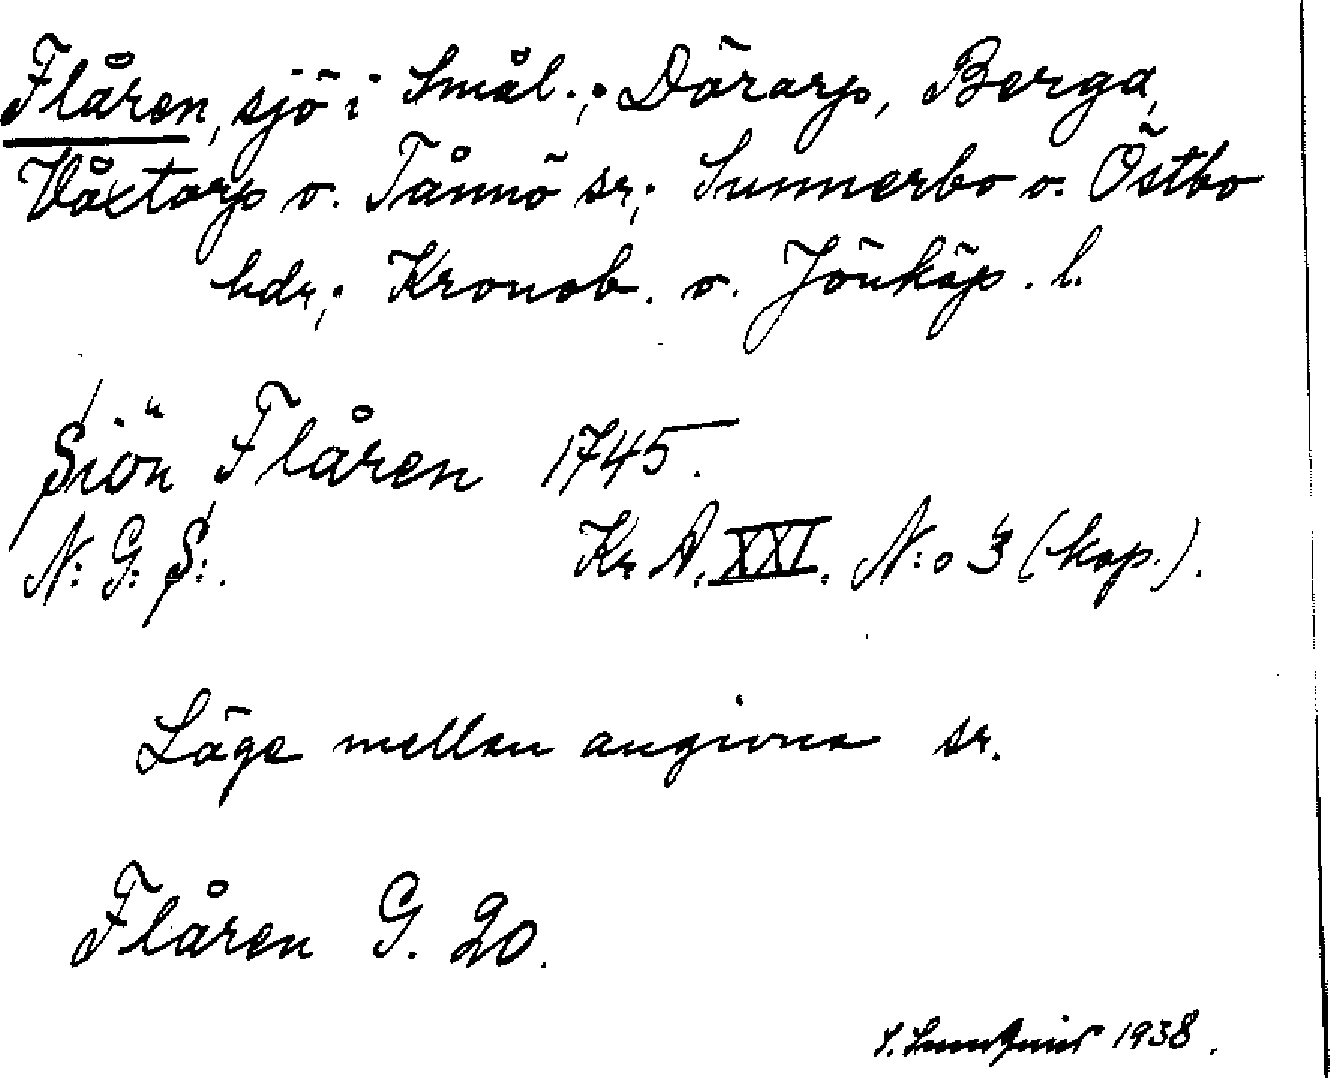 Flåren, sjö i Smål.; Dörarp, Berga,
Våxtorp o. Tånnö sr; Sunnerbo o. Östbo
hdr; Kronob. o. Jönköp. l.
Siön Flåren 1745.
N: G: S:. Kr. A. XXI. N:o 3 (kop.).
Läge mellan angivna sr.
Flåren G. 20.
1938.